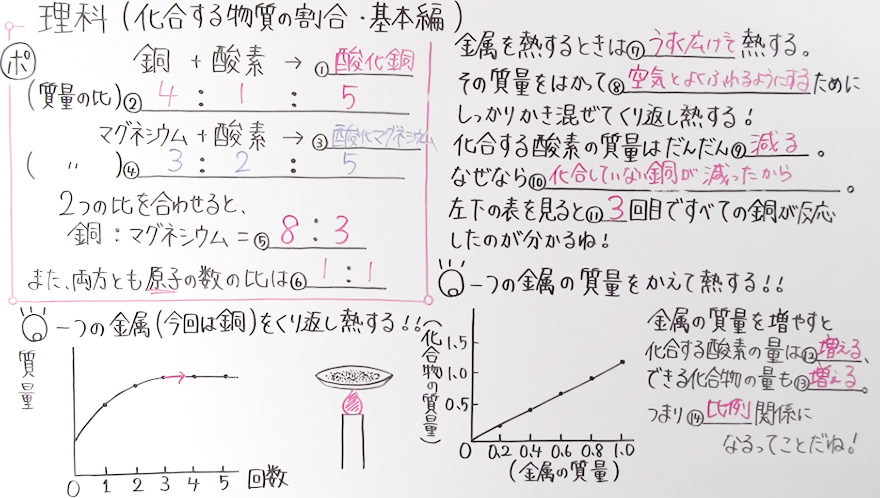 理科(化合する物質の割合・基本編)
ポ
銅 + 酸素 → ①酸化銅
(質量の比)② 4 : 1 : 5
マグネシウム + 酸素 → ③酸化マグネシウム
( 〃 )④ 3 : 2 : 5
2つの比を合わせると、
銅:マグネシウム=⑤ 8 : 3
また、両方とも原子の数の比は⑥ 1 : 1
一つの金属(今回は銅)をくり返し熱する!!
質量
0 1 2 3 4 5 回数
金属を熱するときは⑦うすく広げて熱する。
その質量をはかって⑧空気とよくふれるようにするために
しっかりかき混ぜてくり返し熱する!
化合する酸素の質量はだんだん⑨減る。
なぜなら⑩化合していない銅が減ったから。
左下の表を見ると⑪3回目ですべての銅が反応
したのが分かるね!
一つの金属の質量をかえて熱する!!
(化合物の質量)
1.5
1.0
0.5
0 0.2 0.4 0.6 0.8 1.0
(金属の質量)
金属の質量を増やすと
化合する酸素の量は⑫増える、
できる化合物の量も⑬増える。
つまり⑭比例関係に
なるってことだね!